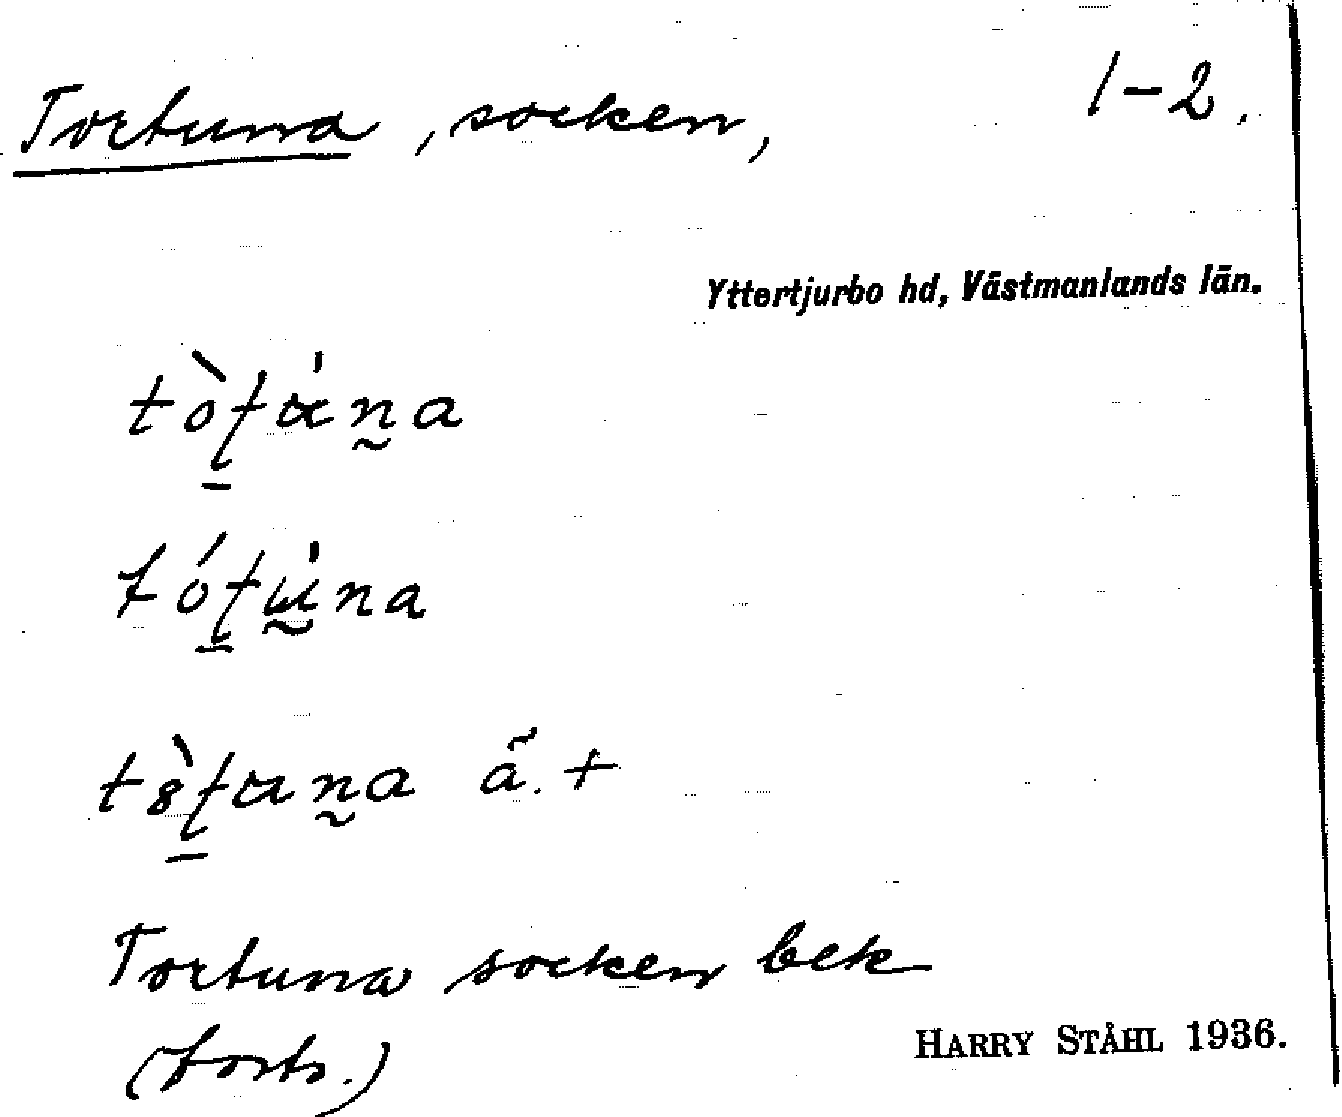 Tortuna, socken, 1–2.
Yttertjurbo hd, Västmanlands län.
Tortuna socken bek
(forts.)
HARRY STÅHL 1936.